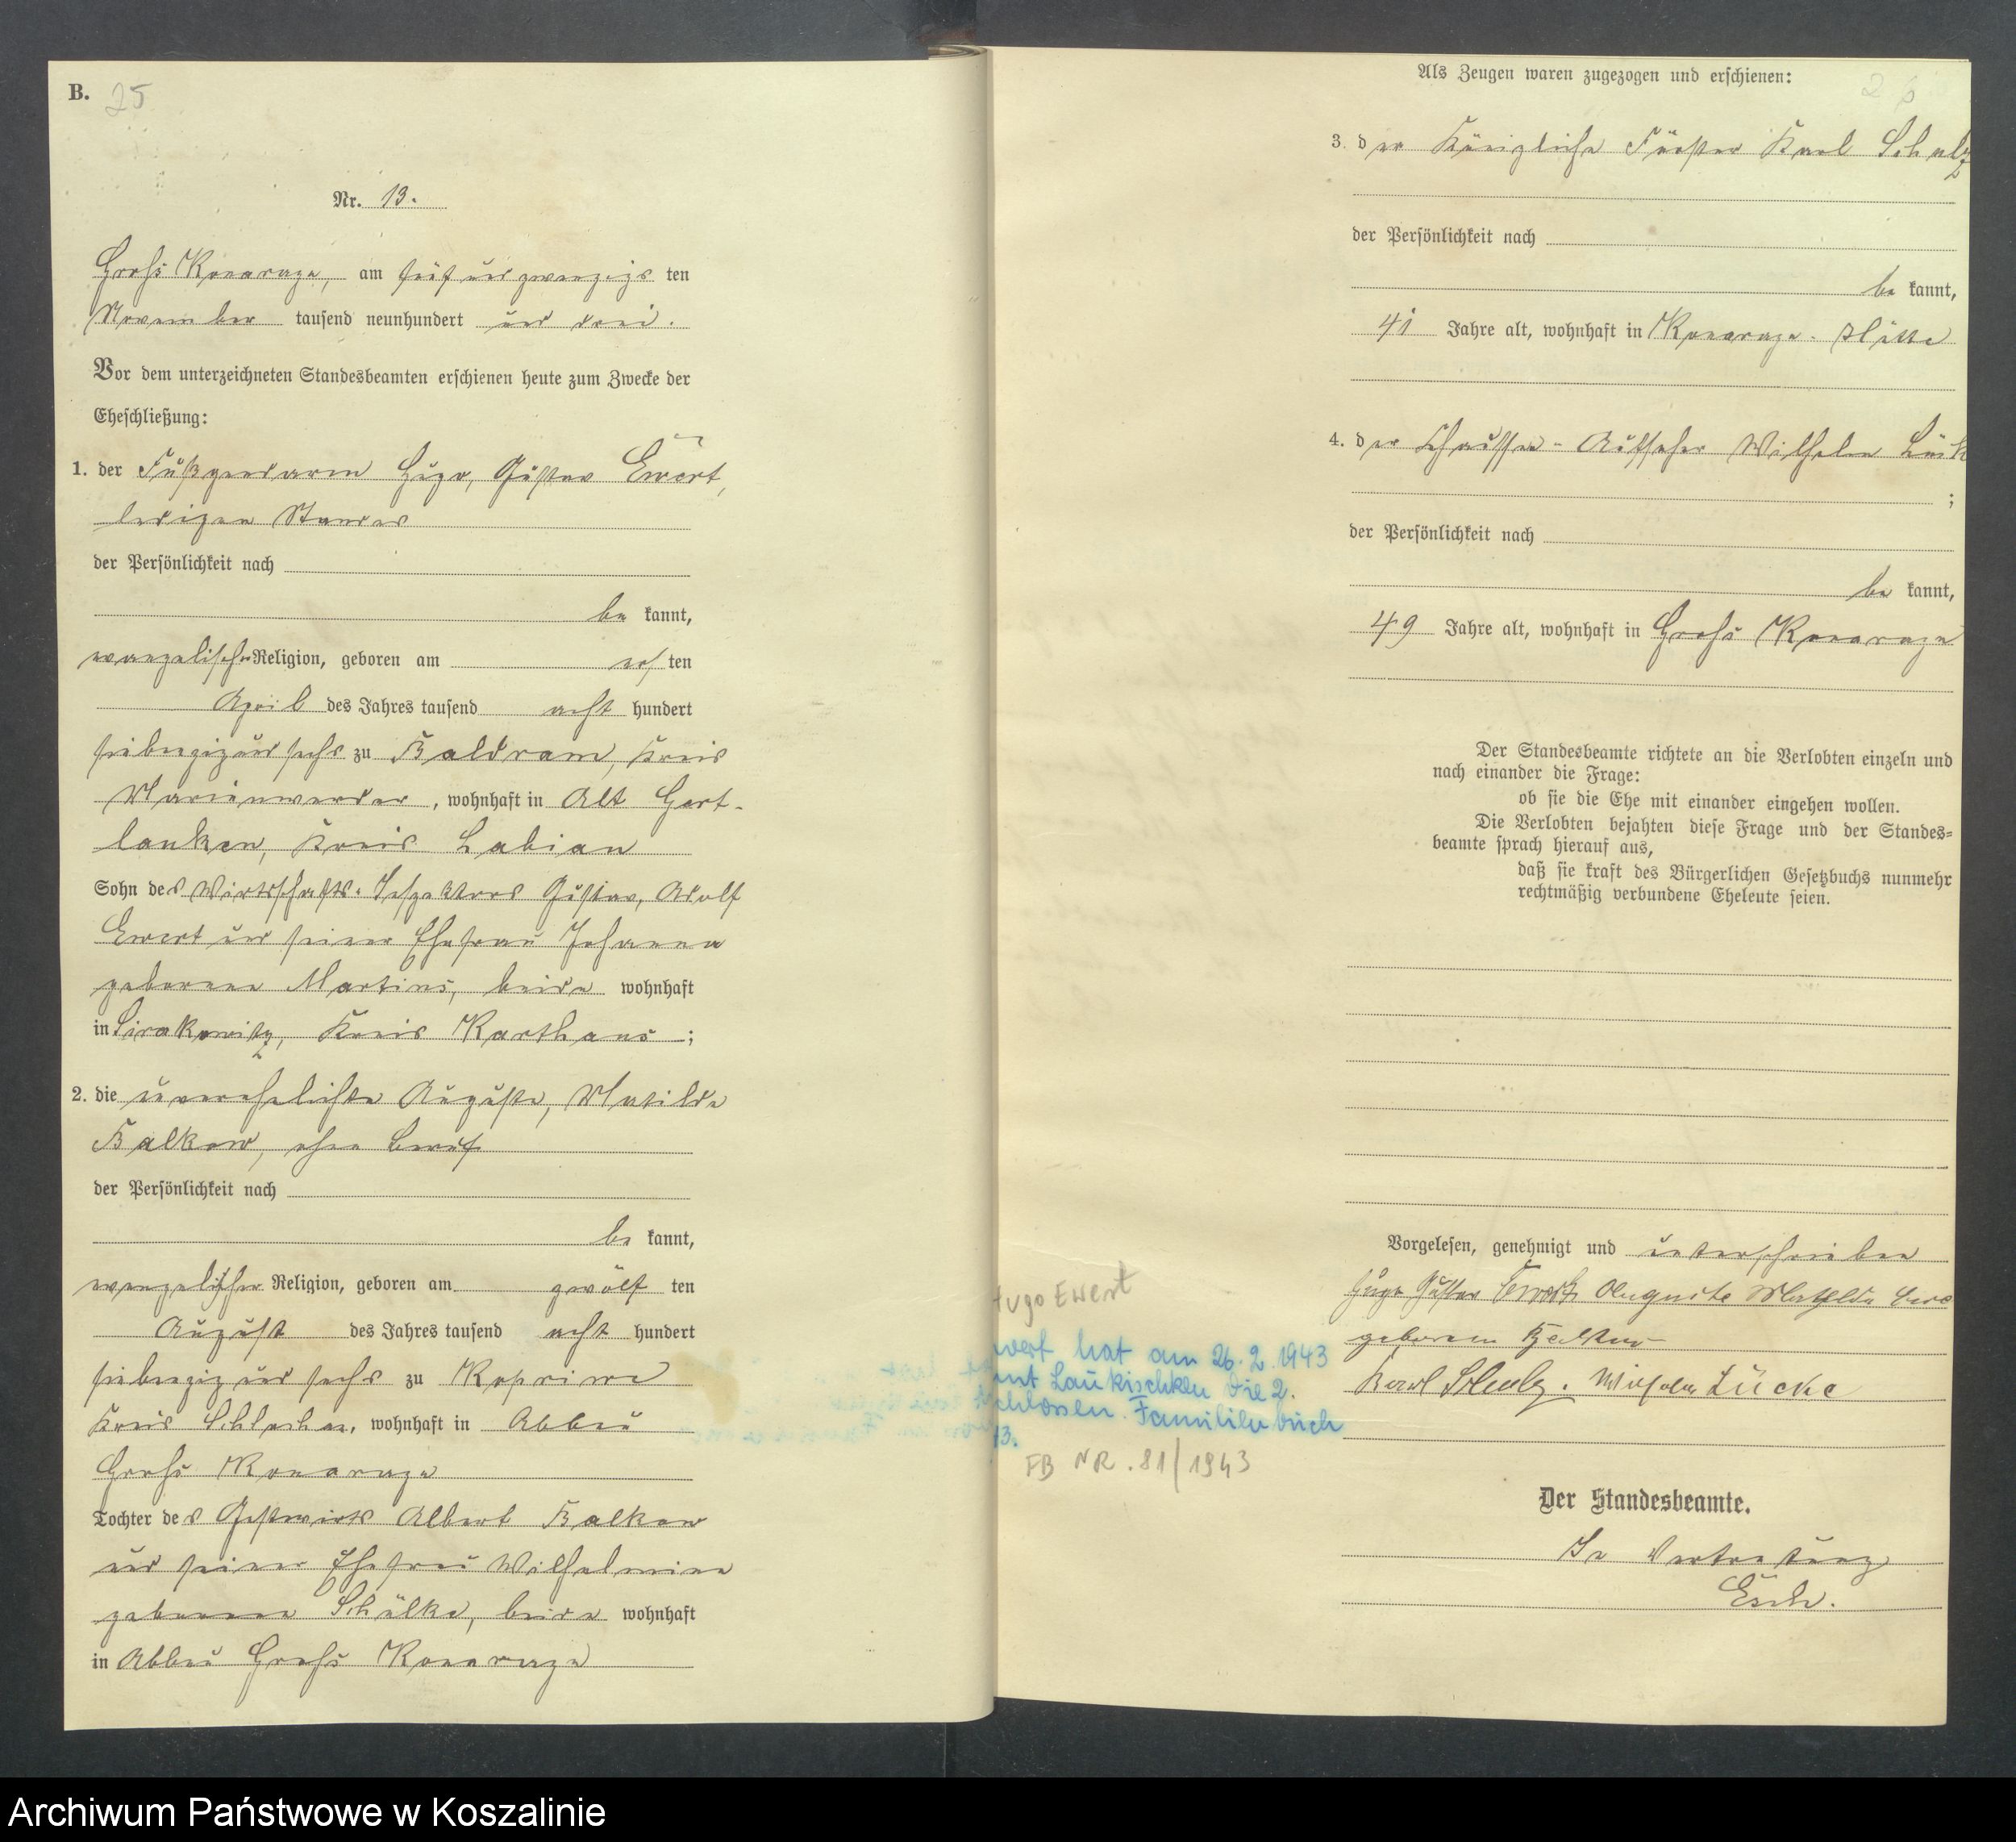 B. 25
Nr. 13.
Groß Konarzyn, am fünfundzwanzigs ten
November tausend neunhundert und drei.
Vor dem unterzeichneten Standesbeamten erschienen heute zum Zwecke der
Eheschließung:
1. der Fußgendarm Hugo, Gustav Ewert,
ledigen Standes
der Persönlichkeit nach
be kannt,
evangelischer Religion, geboren am ers ten
April des Jahres tausend acht hundert
siebenzigundsechs zu Baldram, Kreis
Marienwerder, wohnhaft in Alt Gert-
lauken, Kreis Labiau
Sohn des Wirtschafts-Inspektors Gustav, Adolf
Ewert und seiner Ehefrau Johanna
geborene Martins, beide wohnhaft
in Sirakowitz, Kreis Karthaus;
2. die unverehelichte Auguste, Matilde
Balkow, ohne Beruf
der Persönlichkeit nach
be kannt,
evangelischer Religion, geboren am zwölf ten
August des Jahres tausend acht hundert
siebenzig und sechs zu Kopriwe
Kreis Schlochau, wohnhaft in Abbau
Groß Konarzyn
Tochter des Gastwirts Albert Balkow
und seiner Ehefrau Wilhelmine
geborene Schülke, beide wohnhaft
in Abbau Groß Konarzyn
26
Als Zeugen waren zugezogen und erschienen:
3. der Königliche Förster Karl Schulz
der Persönlichkeit nach
be kannt,
41 Jahre alt, wohnhaft in Konarzyn-Hütte
4. der Chaussee-Aufseher Wilhelm Lück
;
der Persönlichkeit nach
be kannt,
49 Jahre alt, wohnhaft in Groß Konarzyn
Der Standesbeamte richtete an die Verlobten einzeln und
nach einander die Frage:
ob sie die Ehe mit einander eingehen wollen.
Die Verlobten bejahten diese Frage und der Standes=
beamte sprach hierauf aus,
daß sie kraft des Bürgerlichen Gesetzbuchs nunmehr
rechtmäßig verbundene Eheleute seien.
Vorgelesen, genehmigt und unterschrieben
Hugo Gustav Ewert Auguste Mathilde
geborene Balkow
Karl Schulz. Wilhelm Lücke
Hugo Ewert
wert hat am 26.2.1943
amt Laukischken die 2.
chlossen. Familienbuch
43.
FB NR. 81/1943
Der Standesbeamte.
In Vertretung
Esch.
Archiwum Państwowe w Koszalinie